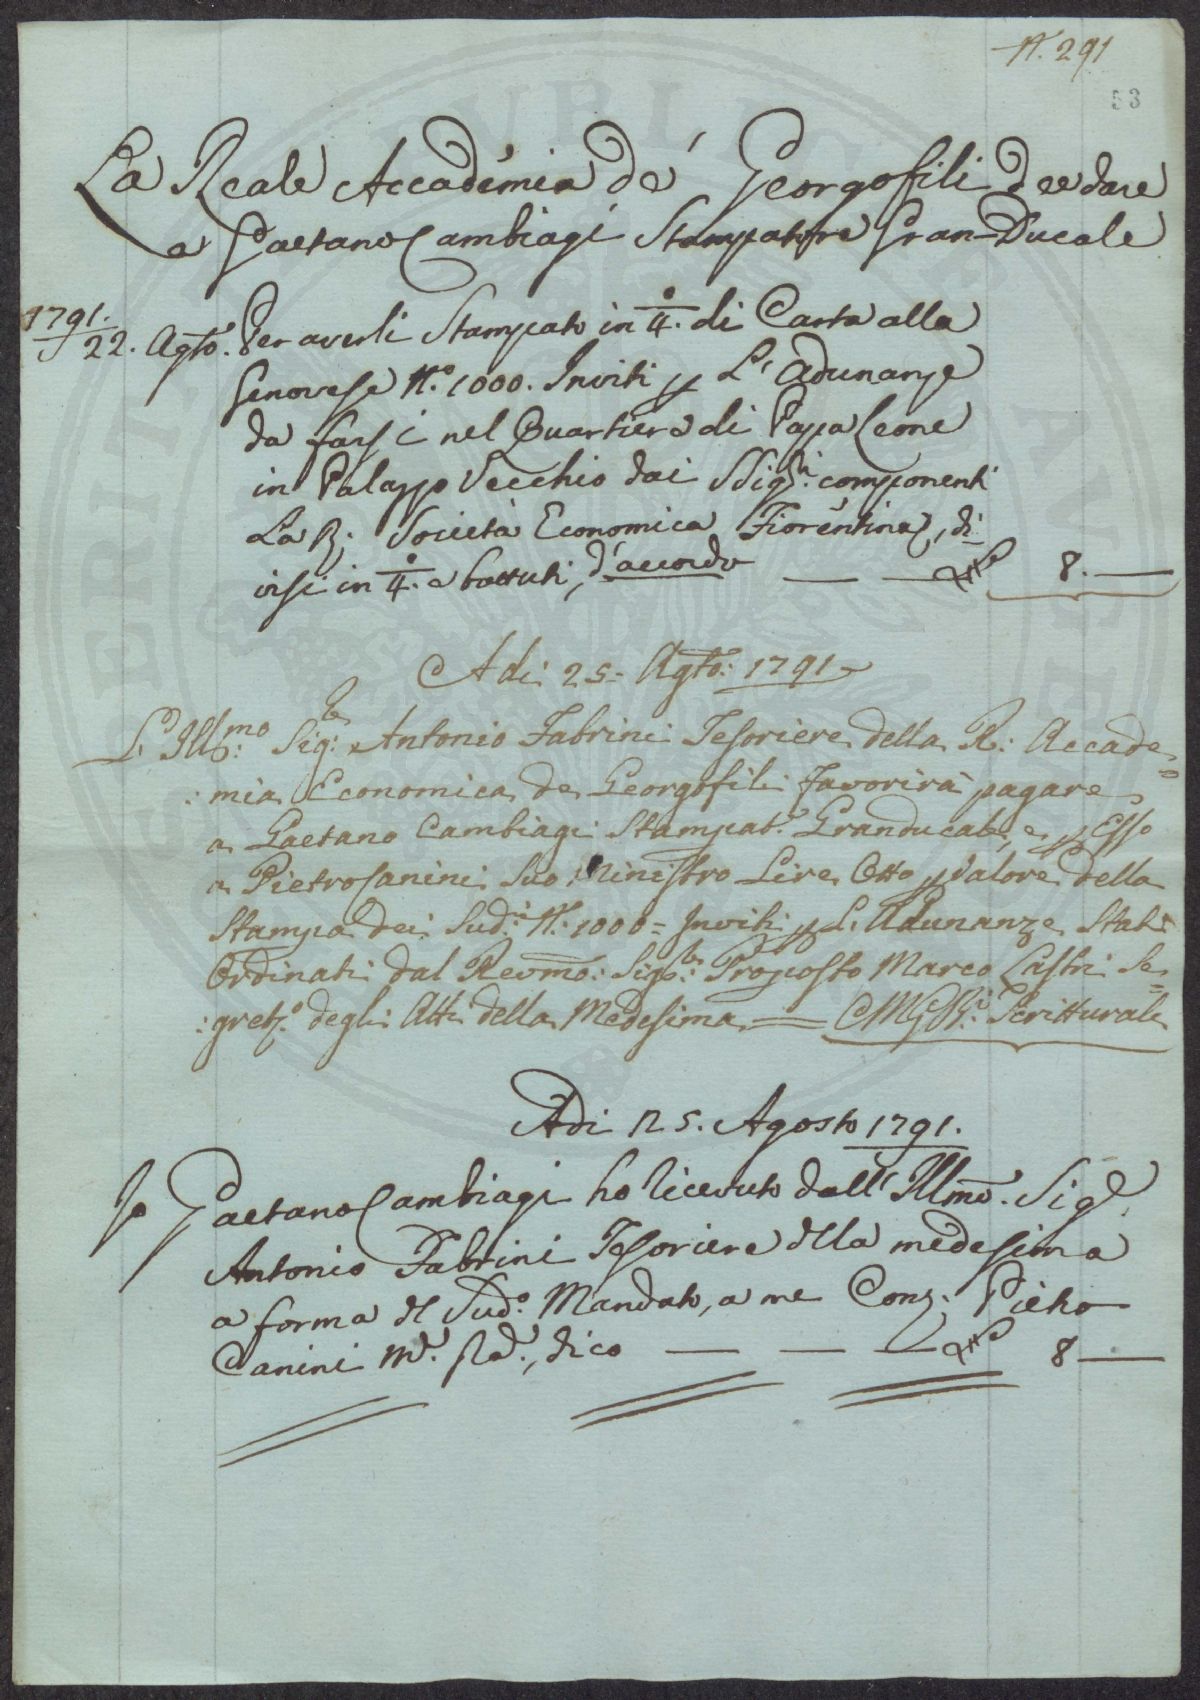 N. 291
53
La Reale Accademia de' Georgofili dee dare
a Gaetano Cambiagi Stampatore Gran-Ducale
1791.
22. Agto. Per averli Stampato in 4. di Carta alla
Genovese N.o 1000. Inviti p L' Adunanze
da farsi nel Quartiere di Papa Leone
in Palazzo Vecchio dai SSig.ri componenti
La R. Società Economica Fiorentina, di-
visi in 4. e battuti, d'accordo — — 8. —
Adi: 25= Agto: 1791
L' Ill.mo Sig.re Antonio Fabrini Tesoriere della R: Accade=
:mia Economica de Georgofili favorirà pagare
a Gaetano Cambiagi Stampat.e Granducale, e p Esso
a Pietro Canini Suo Ministro Lire Otto p valore della
Stampa dei Sud.i N. 1000= Inviti p L' Adunanze Stati
Ordinati dal Revmo: Sig.re Proposto Marco Lastri Se=
:gret.o degli Atti della Medesima = Scritturale
Adi 25. Agosto 1791.
Io Gaetano Cambiagi ho ricevuto dall' Illmo. Sig.e
Antonio Fabrini Tesoriere della medesima
a forma del Sud.o Mandato, a me Pietro
Canini dico — — — 8 —